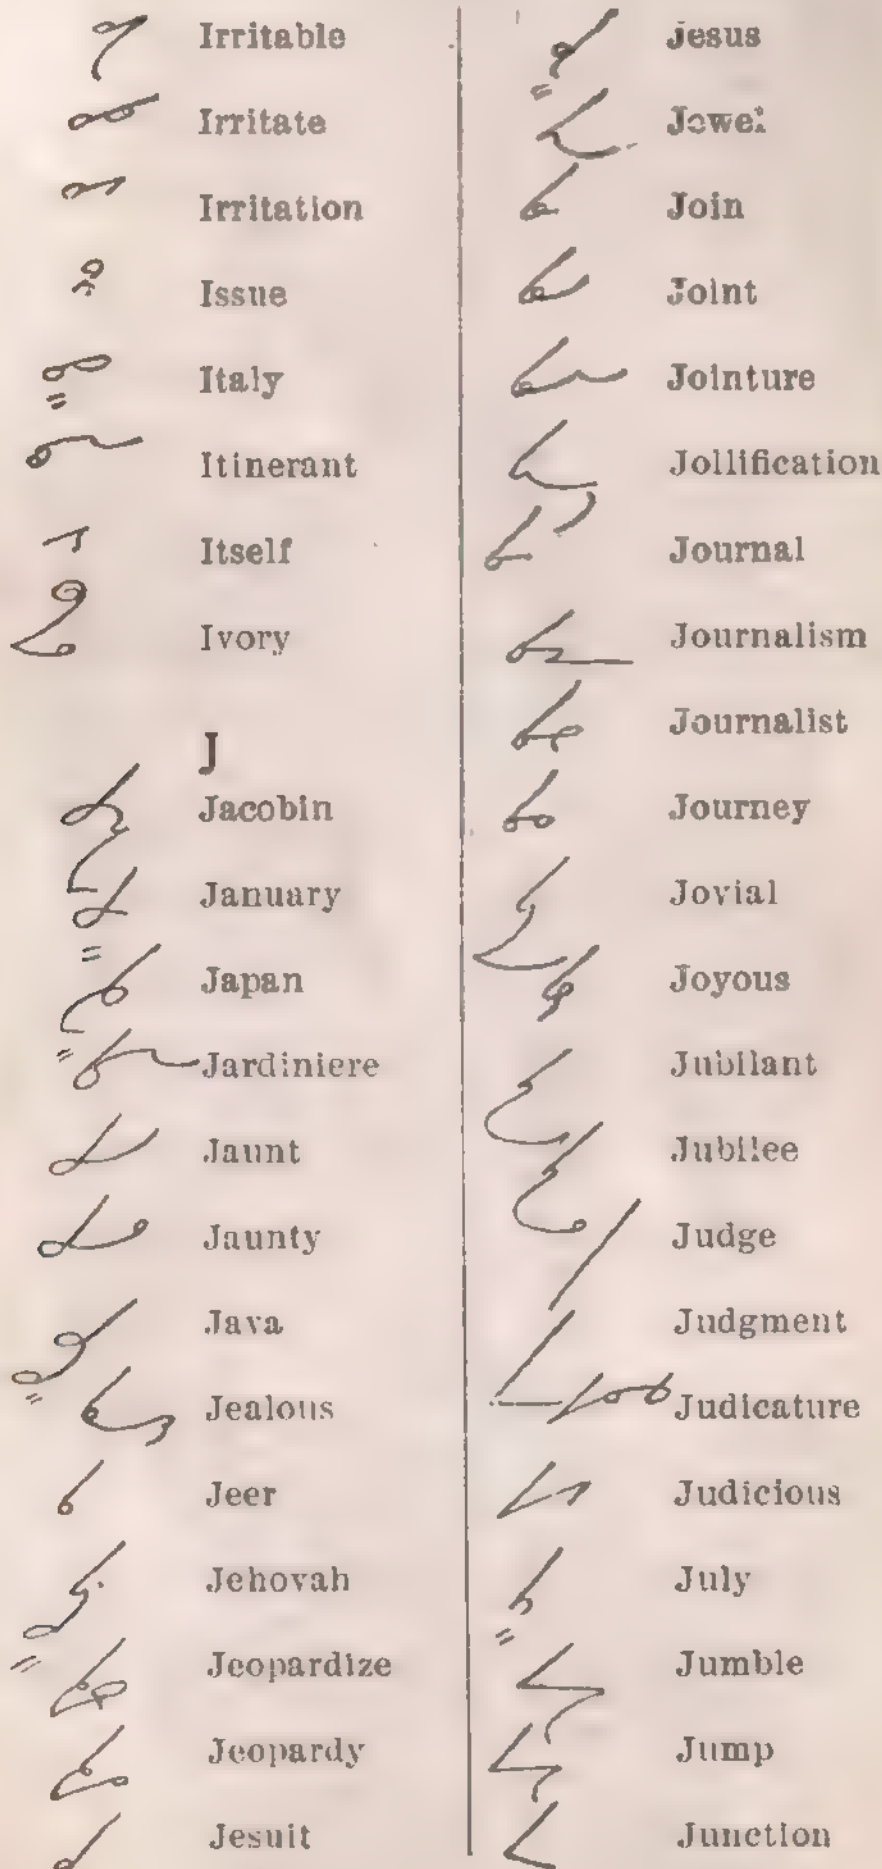 Irritable
Irritate
Irritation
Issue
Italy
Itinerant
Itself
Ivory
J
Jacobin
January
Japan
Jardiniere
Jaunt
Jaunty
Java
Jealous
Jeer
Jehovah
Jeopardize
Jeopardy
Jesuit
Jesus
Jewel
Join
Joint
Jointure
Jollification
Journal
Journalism
Journalist
Journey
Jovial
Joyous
Jubilant
Jubilee
Judge
Judgment
Judicature
Judicious
July
Jumble
Jump
Junction